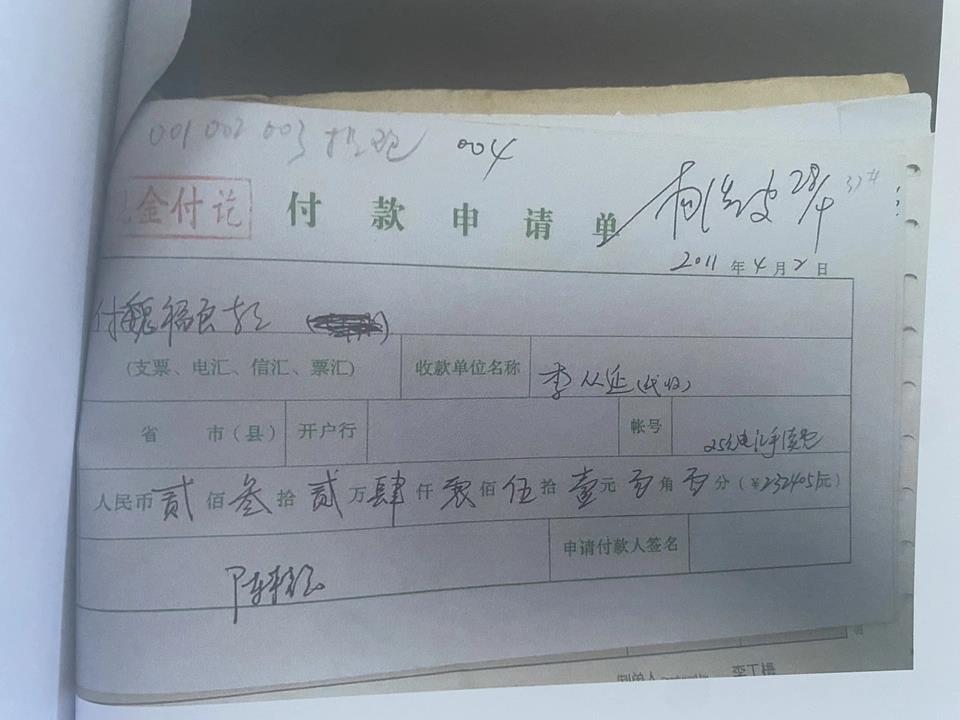 001 002 003 004
金付讫
付款申请单
28/4
2011年4月2日
付魏福良款
(支票、电汇、信汇、票汇) 收款单位名称 李从延(代收)
省 市(县) 开户行 帐号 25元电汇手续费
人民币贰佰叁拾贰万肆仟零佰伍拾壹元 角 分(¥2324051元)
申请付款人签名
制单人